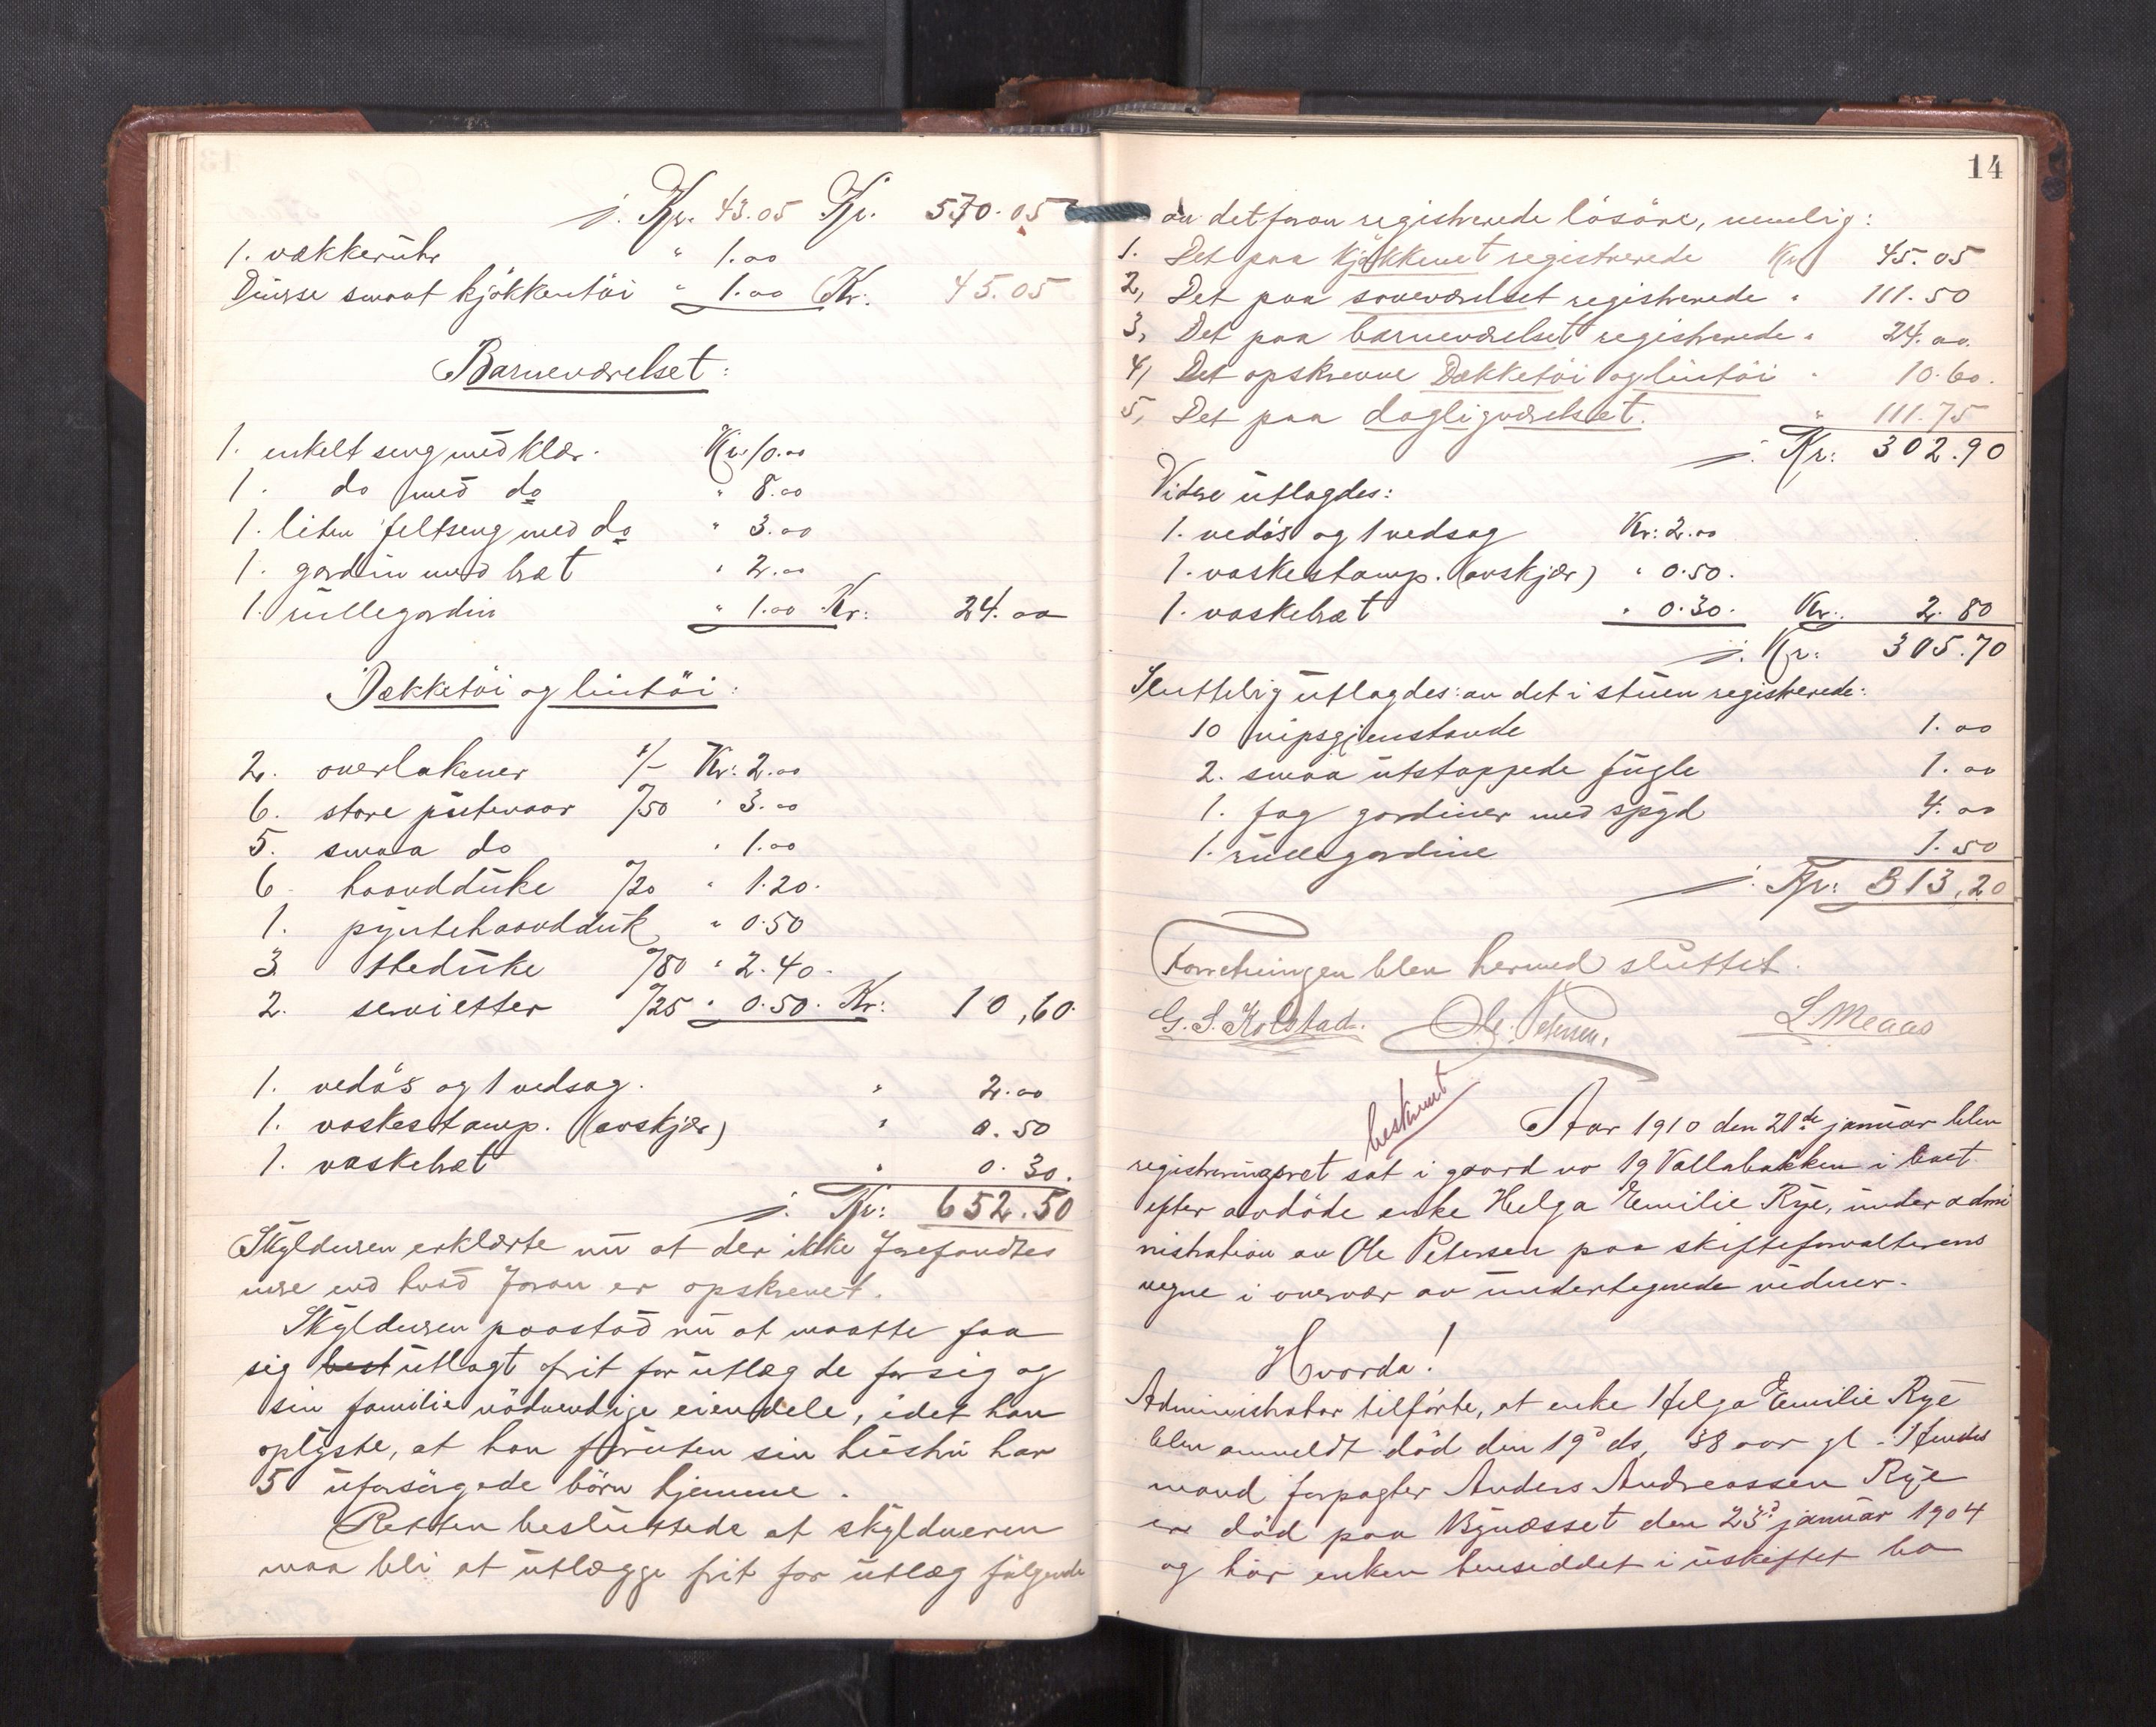 ÷ Kr. 43.05 Kr. 570.05
1. vækkeruhr " 1.00
Diverse smaat kjøkkentøi " 1.00 Kr: 45.05
Barneværelset:
1. enkelt seng med klær. Kr 10.00
1. do med do " 8.00
1. liten feltseng med do " 3.00
1. gardin med bræt " 2.00
1. rullegardin " 1.00 Kr: 24.00
Dækketøi og lintøi:
2. overlakener 1/- Kr: 2.00
6. store putevaar /50 " 3.00
5. smaa do " 1.00
6. haandduke /20 " 1.20.
1. pyntehaandduk " 0.50
3. theduke /80 " 2.40.
2. servietter /25 " 0.50. Kr: 10,60.
1. vedøs og 1 vedsag. " 2.00
1. vaskestamp. (avskjær) " 0.50
1. vaskebræt " 0.30.
÷ Kr: 652.50
Skyldneren erklærte nu at der ikke forefandtes
mere end hvad foran er opskrevet.
Skyldneren paastod nu at maatte faa
sig utlagt frit for utlæg de for sig og
sin familie nödvendige eiendele, idet han
oplyste, at han foruten sin hustru har
5 uforsörgede börn hjemme.
Retten besluttede at skyldneren
maa bli at utlægge frit for utlæg fölgende
14
av det foran registrerede lösöre, nemlig:
1. Det paa Kjökkenet registrerede Kr 45.05
2, Det paa soveværelset registrerede " 111.50
3, Det paa barneværelset registrerede " 24.00.
4, Det opskrevne Dækketöi og lintöi " 10.60.
5, Det paa dagligværelset. " 111.75
÷ Kr: 302.90
Videre utlagdes:
1. vedøs og 1 vedsag Kr: 2.00
1. vaskestamp. (avskjær) " 0.50.
1. vaskebræt " 0.30. Kr: 2.80
÷ Kr: 305.70
Sluttelig utlagdes: av det i stuen registrerede:
10 nipsgjenstande 1.00
2. smaa utstoppede fugle 1.00
1. fag gardiner med spyd 4.00
1. rullegardine 1.50
÷ Kr: 313,20
Forretningen blev hermed sluttet.
G. S. Kolstad. Ole Petersen. L Meaas
beskrevet
Aar 1910 den 21de januar blev
registreringsret sat i gaard no 19 Vollabakken i boet
efter avdöde enke Helga Emilie Rye, under admi
nistration av Ole Petersen paa skifteforvalterens
vegne i overvær av undertegnede vidner.
Hvorda!
Administrator tilförte, at enke Helga Emilie Rye
blev anmeldt död den 19d ds, 38 aar gl. Hendes
mand forpagter Anders Andreassen Rye
er död paa Bynæsset den 23d januar 1904
og har enken hensiddet i uskiftet bo